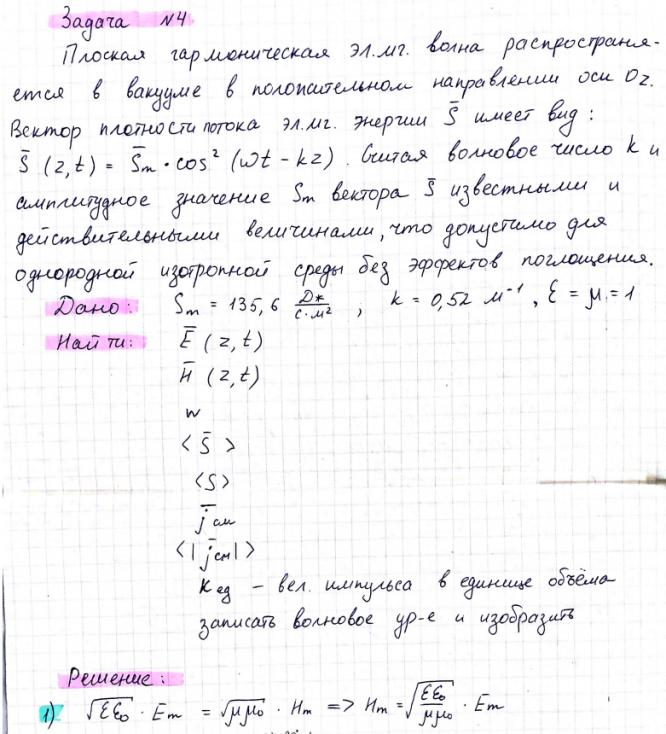 Задача №4
Плоская гармоническая эл.мг. волна распространя-
ется в вакууме в положительном направлении оси Oz.
Вектор плотности потока эл.мг. энергии S̄ имеет вид:
S̄ (z,t) = S̄m · cos² (ωt - kz). Считая волновое число k и
амплитудное значение Sm вектора S̄ известными и
действительными величинами, что допустимо для
однородной изотропной среды без эффектов поглощения.
Дано: Sm = 135,6 Дж/(с·м²) ; k = 0,52 м⁻¹, ε = μ = 1
Найти: Ē (z,t)
H̄ (z,t)
w
<S̄>
<S>
j̄ см
<|j̄см|>
Kед - вел. импульса в единице объёма
записать волновое ур-е и изобразить
Решение:
1) √(εε₀) · Em = √(μμ₀) · Hm => Hm = √(εε₀/μμ₀) · Em